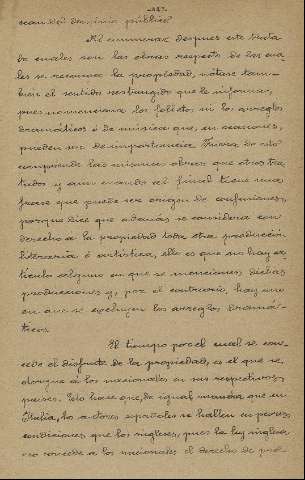 -143-
sean del dominio público.
Al enumerar despues este trata-
do cuales son las obras respecto de las cua-
les se reconoce la propiedad, nótase tam-
bien el sentido restringido que le informa,
pues no menciona los folletos ni los arreglos
dramáticos ó de música que, en ocasiones,
pueden ser de importancia. Fuera de esto
comprende las mismas obras que otros tra-
tados y aun cuando al final tiene una
frase que puede ser origen de confusiones,
porque dice que además se considera con
derecho a la propiedad toda otra producción
literaria ó artística, ello es que no hay ar-
tículo alguno en que se mencionen dichas
producciones y, por el contrario, hay uno
en que se excluyen los arreglos dramá-
ticos.
El tiempo por el cual se con-
cede el disfrute de la propiedad, es el que se
otorgue á los nacionales en sus respectivos
paises. Esto hace que, de igual manera que en
Italia, los autores españoles se hallen en peores
condiciones que los ingleses, pues la ley inglesa
no concede a los nacionales el derecho de pro-